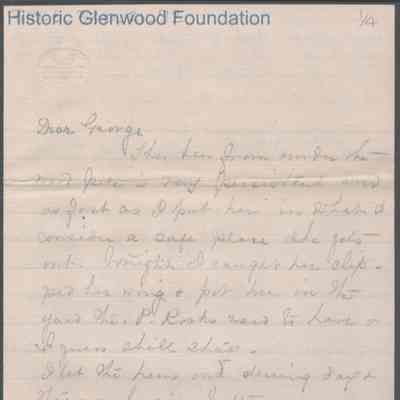 Historic Glenwood Foundation
1/4
Dear George
The hen from under the
wood pile is very persistent and
as fast as I put her in what I
consider a safe place she gets
out. Tonight I caught her clip-
ped her wing & put her in the
yard the P. Rocks used to have &
I guess she'll stay.
I let the hens out during day &